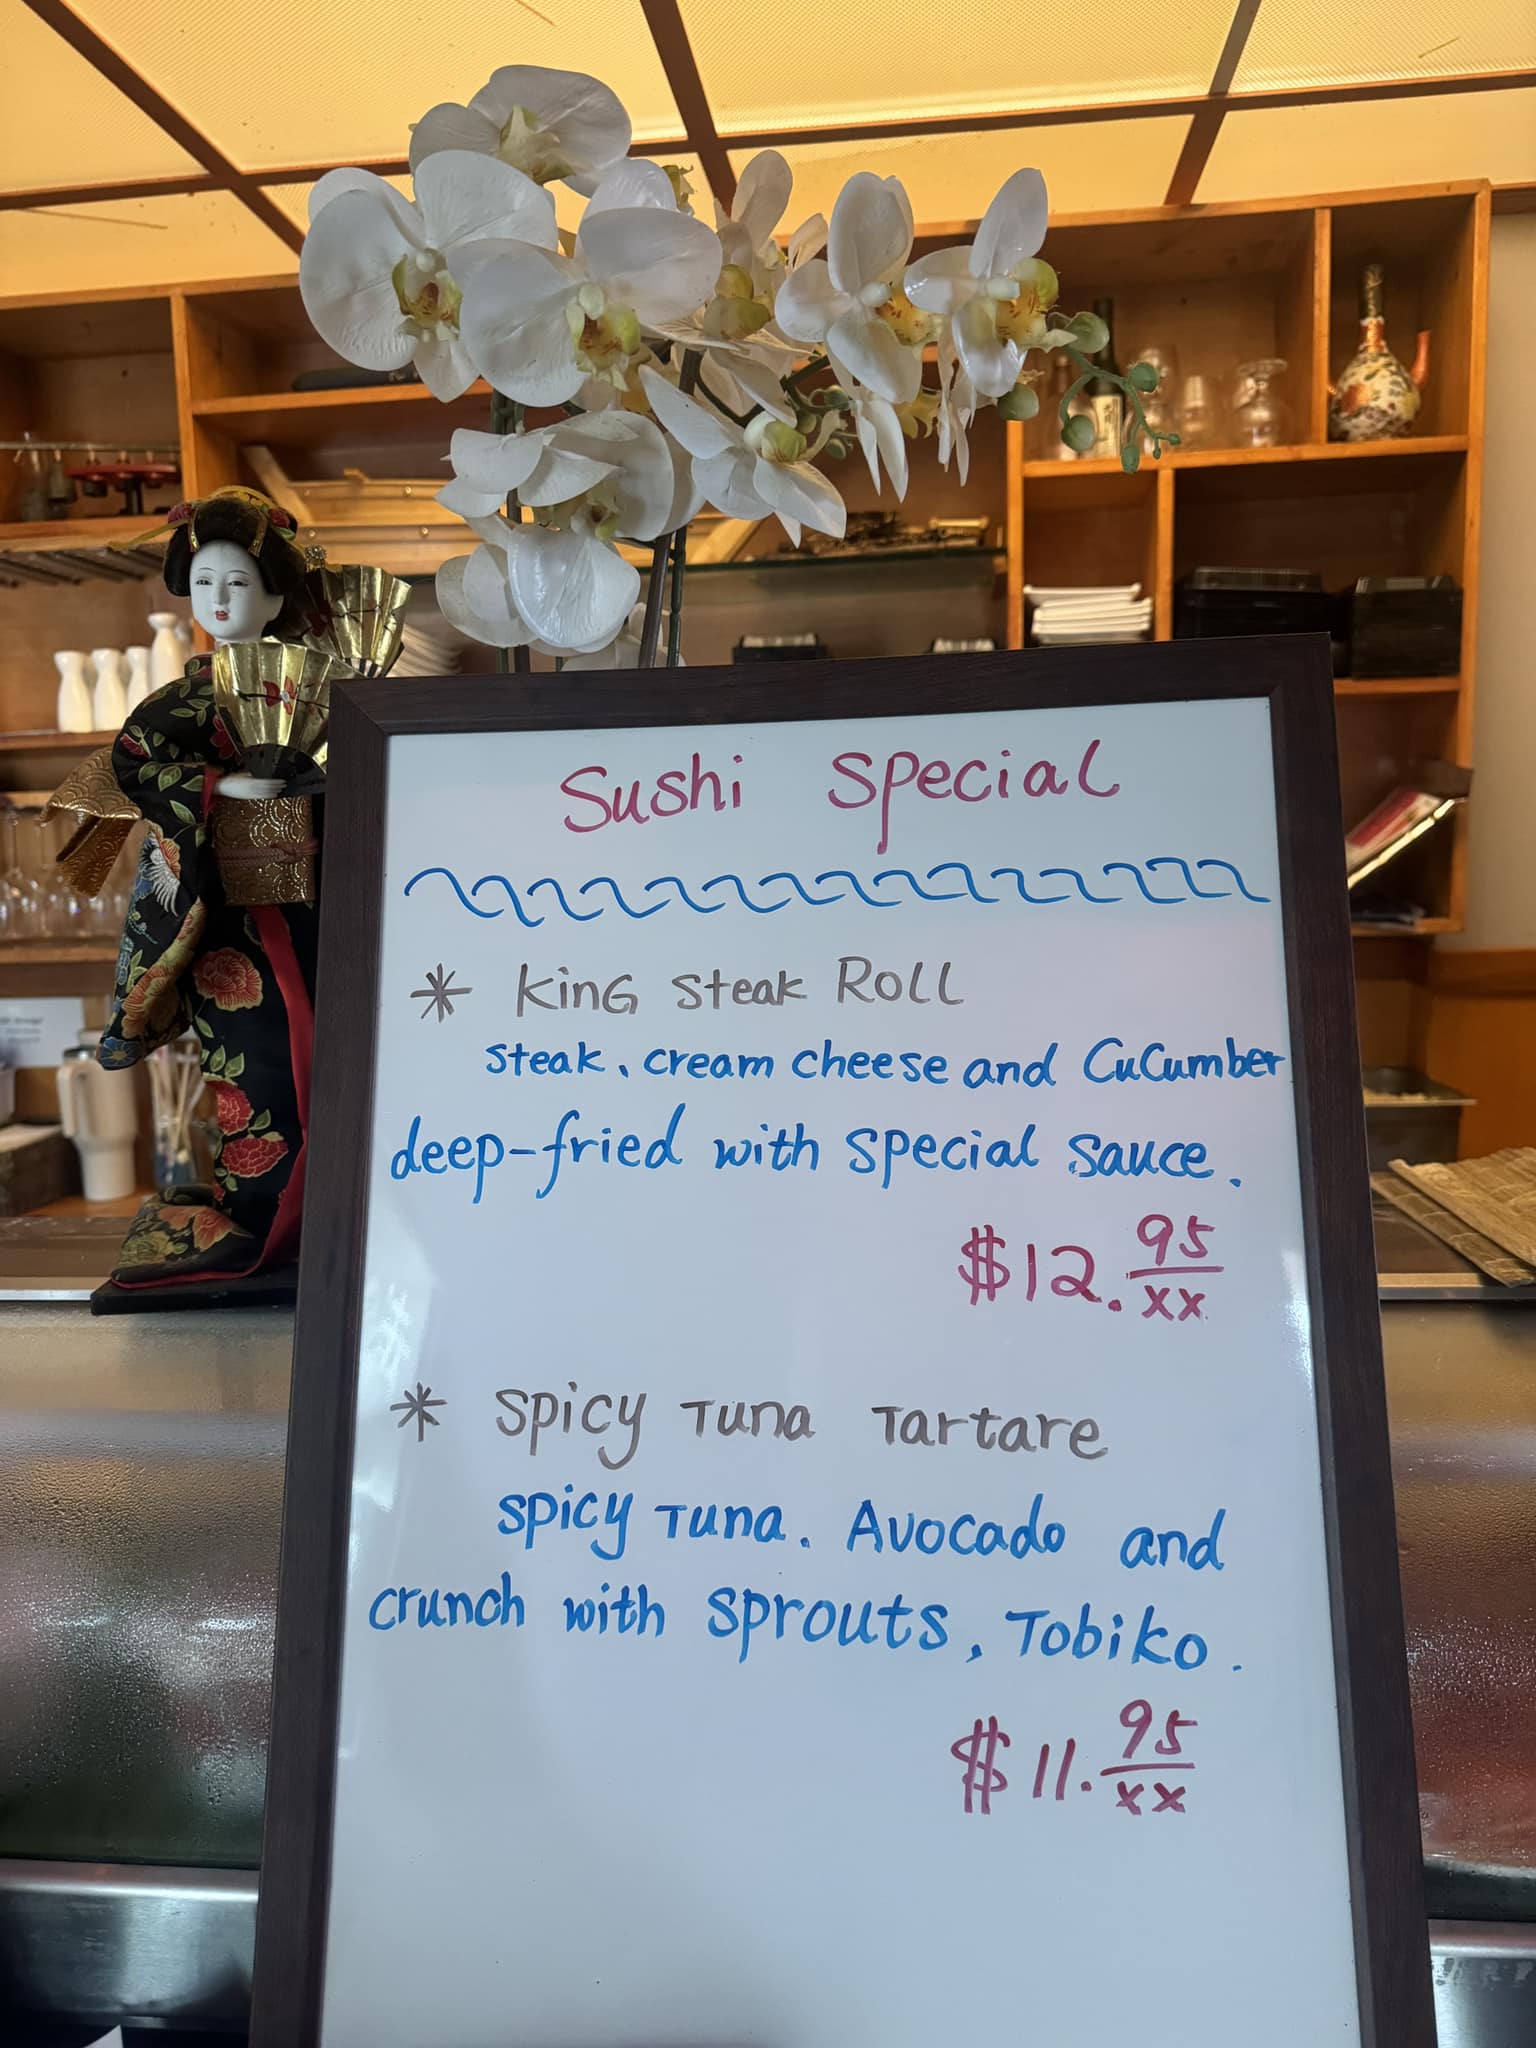 Sushi Special
* King Steak Roll
Steak, cream cheese and Cucumber
deep-fried with special sauce.
$12.95/xx
* Spicy Tuna Tartare
Spicy Tuna. Avocado and
crunch with Sprouts, Tobiko.
$11.95/xx